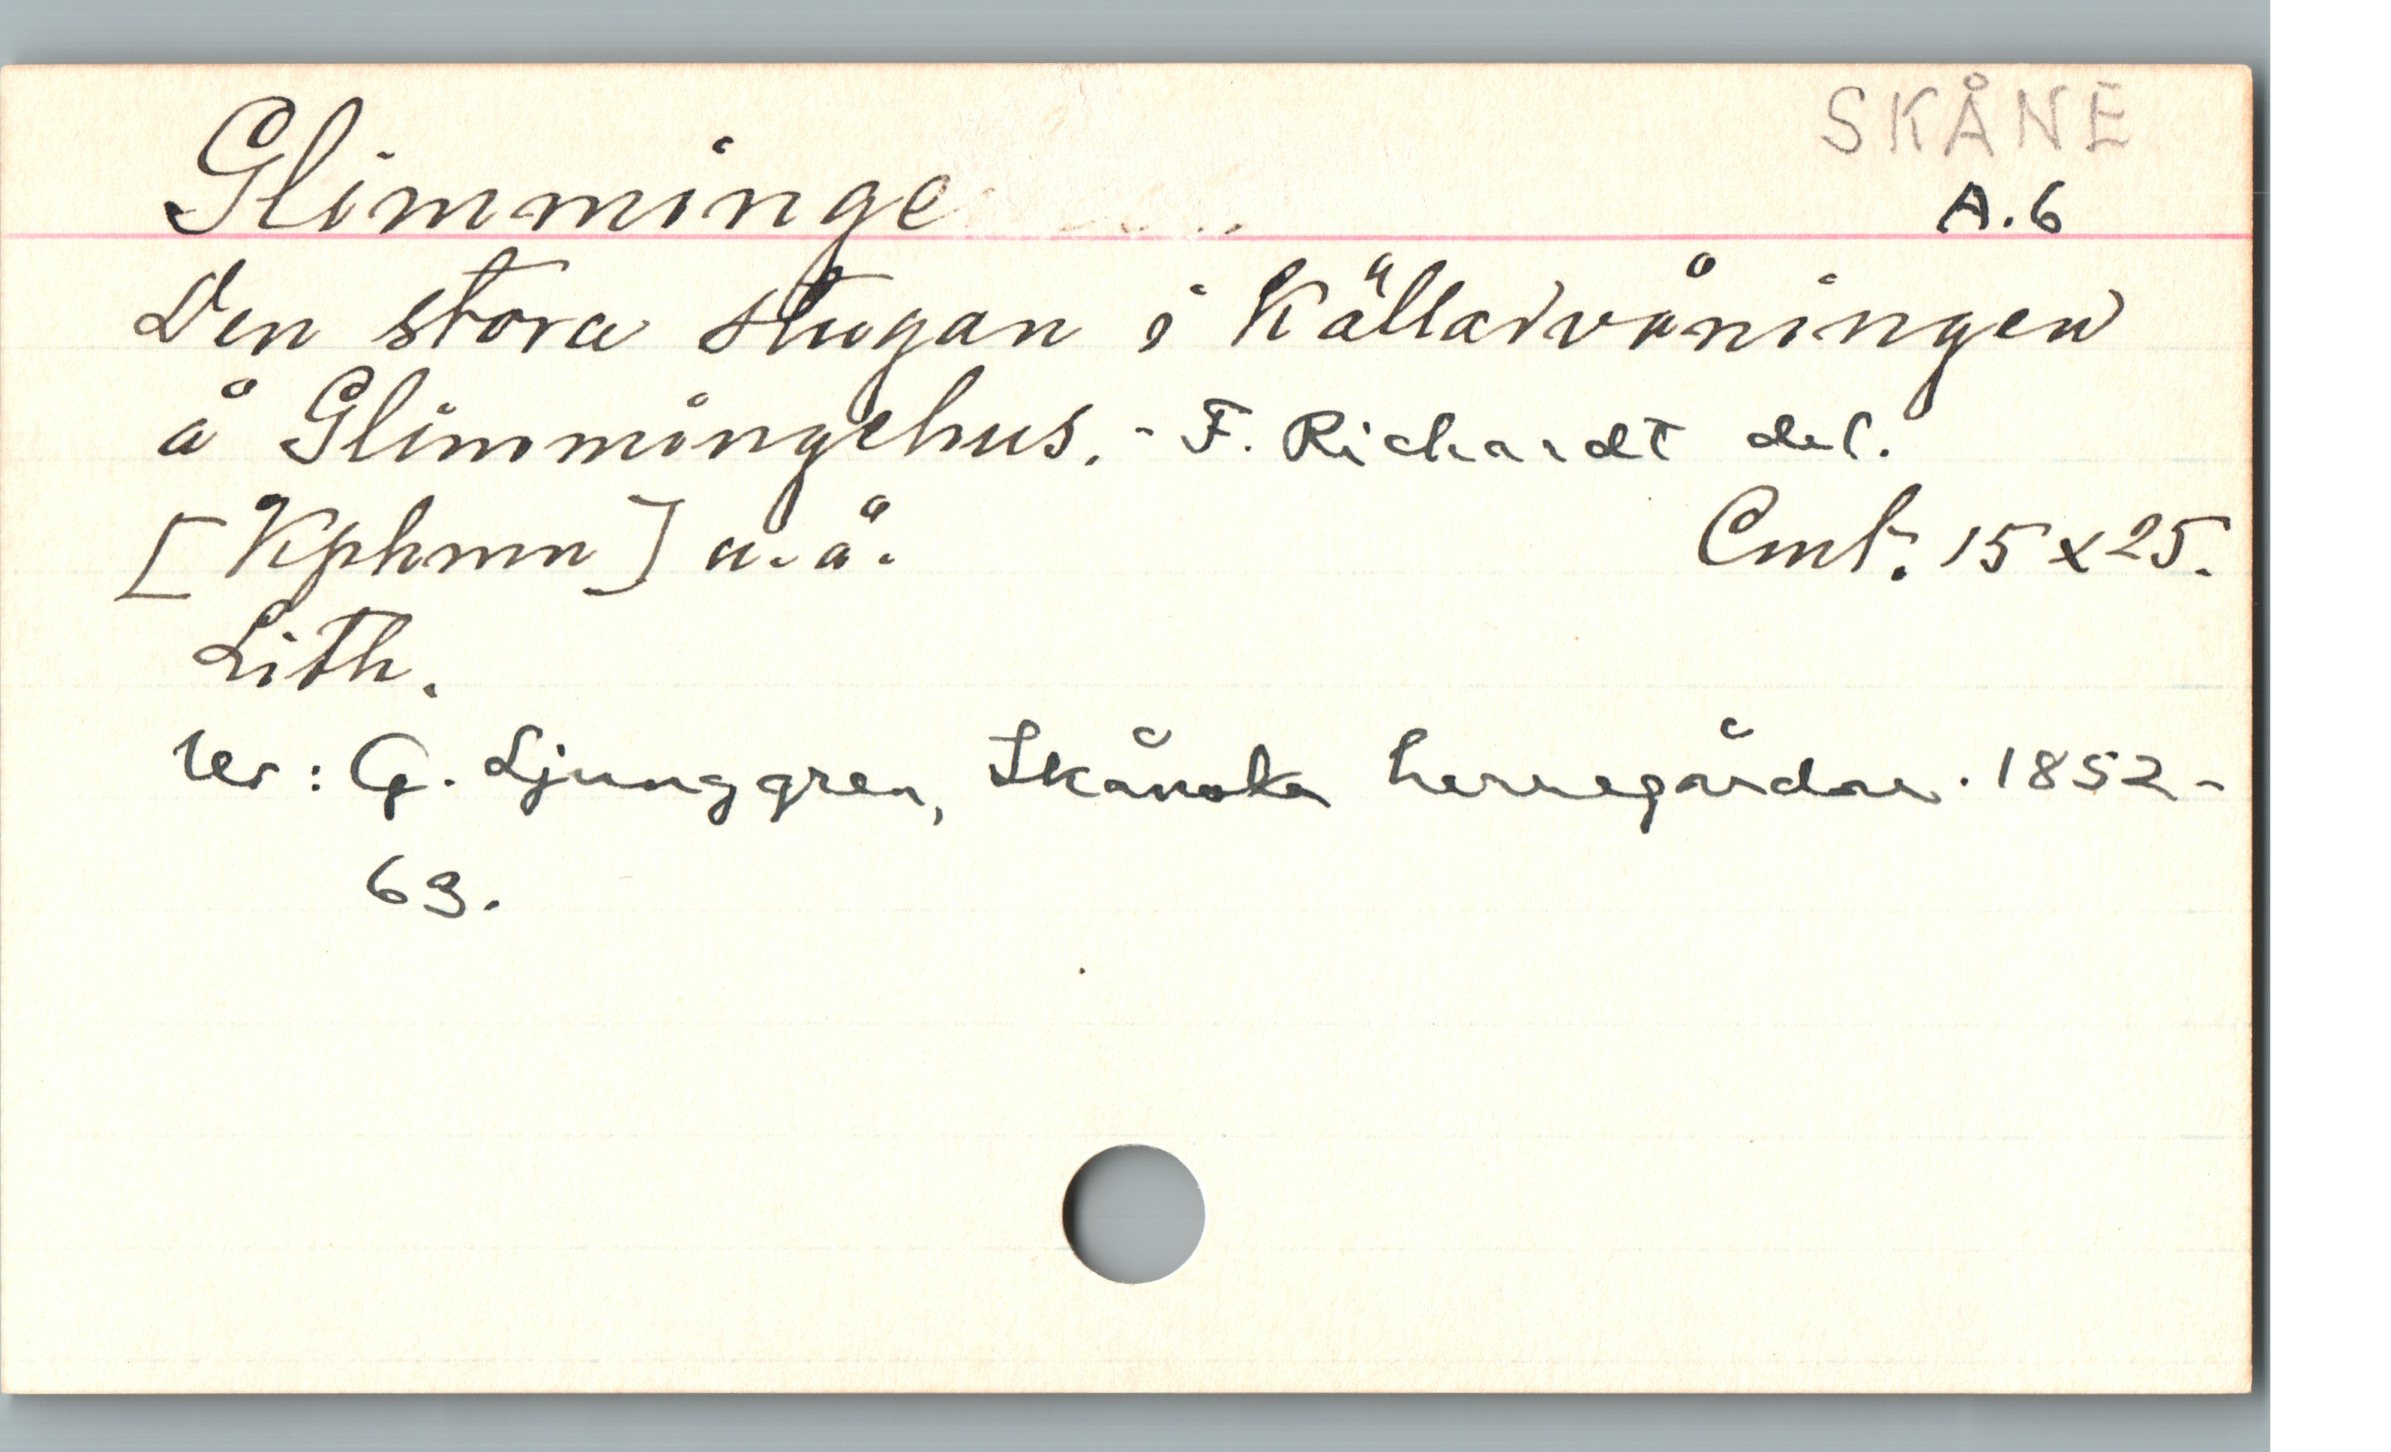 SKÅNE
Glimminge
A.6
Den stora stugan i Källarvåningen
å Glimmingehus. - F. Richardt del.
[Kphmn] u.å. Cmt. 15 x 25.
Lith.
Ur: G. Ljunggren, Skånska herregårdar. 1852-
63.